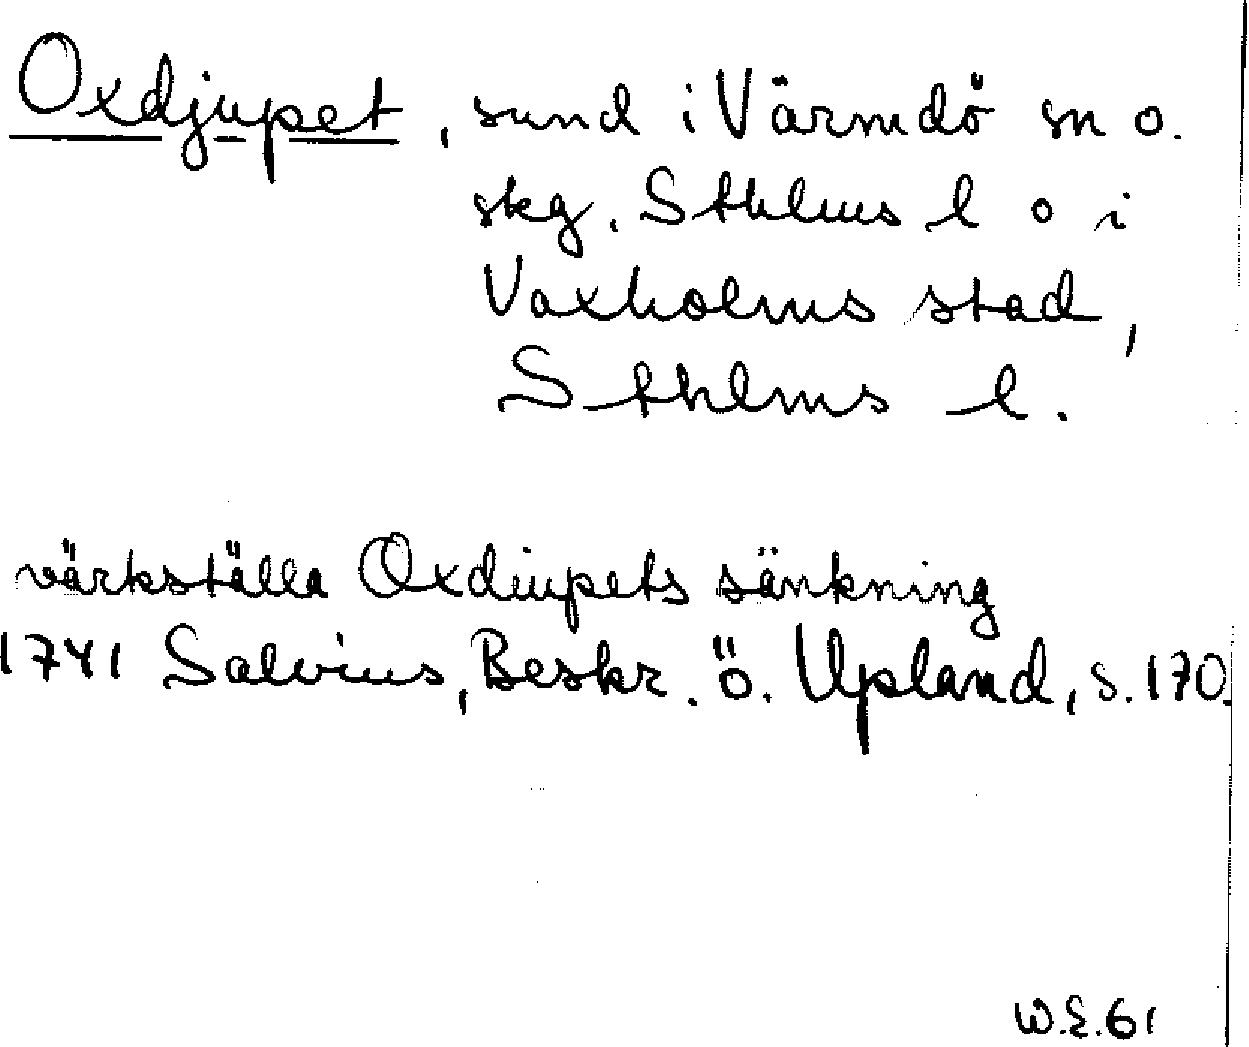 Oxdjupet, sund i Värmdö sn o.
skg. Sthlms l o i
Vaxholms stad,
Sthlms l.
värkställa Oxdiupets sänkning
1741 Salvius, Beskr. ö. Upland, s. 170.
W.E. 61